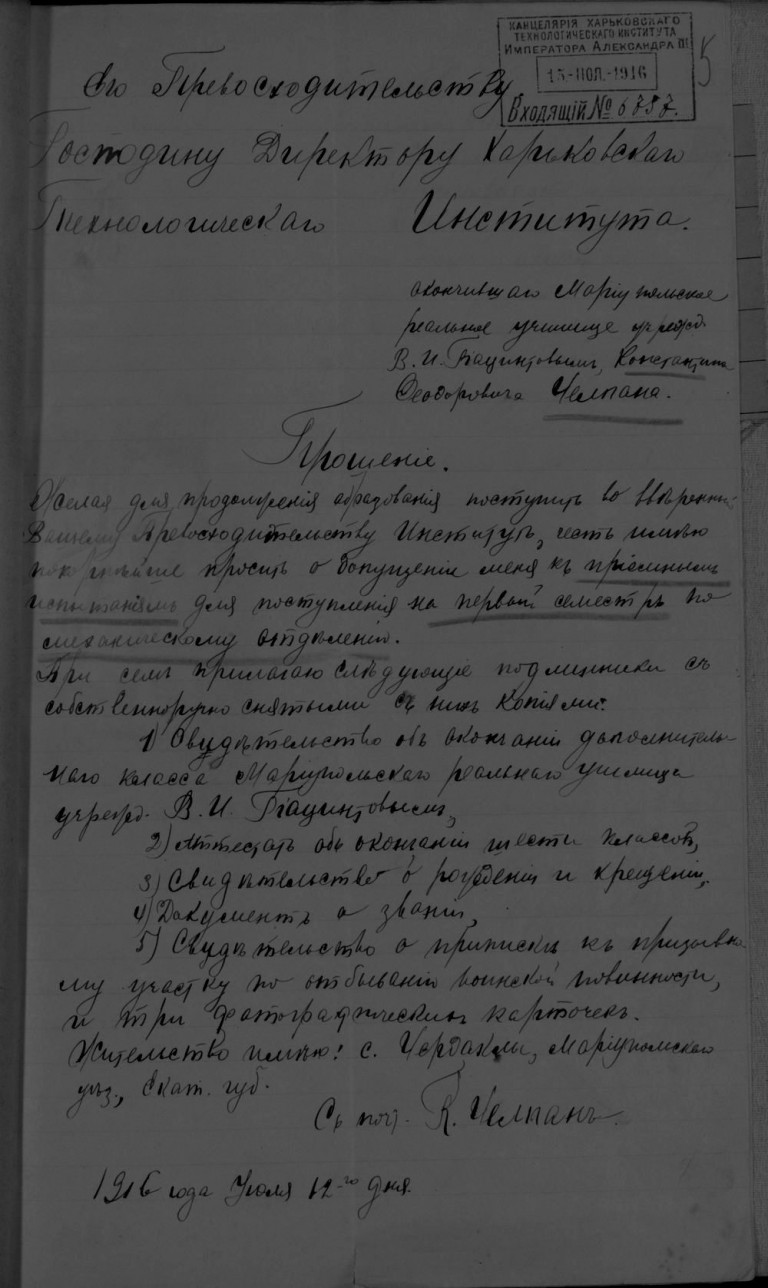 КАНЦЕЛЯРІЯ ХАРЬКОВСКАГО
ТЕХНОЛОГИЧЕСКАГО ИНСТИТУТА
ИМПЕРАТОРА АЛЕКСАНДРА III
15-ІЮЛ.-1916
Входящій №
5
Его Превосходительству
Господину Директору Харьковскаго
Технологическаго Института.
окончившаго Маріупольское
реальное училище учрежд.
В. И. Гіацинтовымъ, Константина
Феодоровича Челпана.
Прошеніе.
Желая для продолженія образованія поступить во ввѣренный
Вашему Превосходительству Институтъ, честь имѣю
покорнѣйше просить о допущеніи меня къ пріемнымъ
испытаніямъ для поступленія на первый семестръ по
механическому отдѣленію.
При семъ прилагаю слѣдующіе подлинники съ
собственноручно снятыми съ нихъ копіями:
1) Свидѣтельство объ окончаніи дополнитель-
наго класса Маріупольскаго реальнаго училища
учрежд. В. И. Гіацинтовымъ,
2) Аттестатъ объ окончаніи шести классовъ,
3) Свидѣтельство о рожденіи и крещеніи,
4) Документъ о званіи,
5) Свидѣтельство о припискѣ къ призывно-
му участку по отбыванію воинской повинности,
и три фотографическихъ карточекъ.
Жительство имѣю: с. Чердаклы, Маріупольскаго
уѣз., Екат. губ.
Съ почт. К. Челпанъ.
1916 года Іюля 12-го дня.